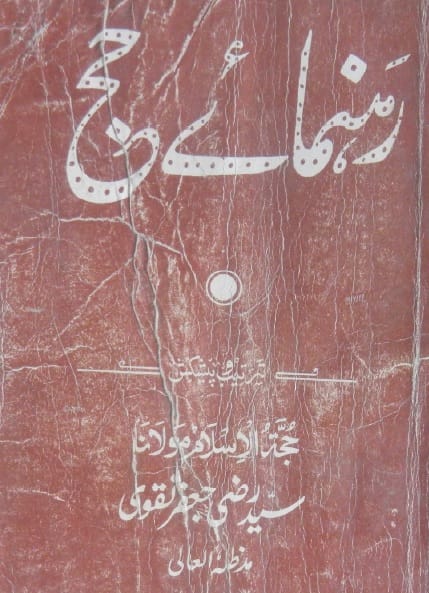 رہنمائے حج
ترتیب و پیشکش
حجۃ الاسلام مولانا
سیّد رضی جعفر نقوی
مدظلہ العالی